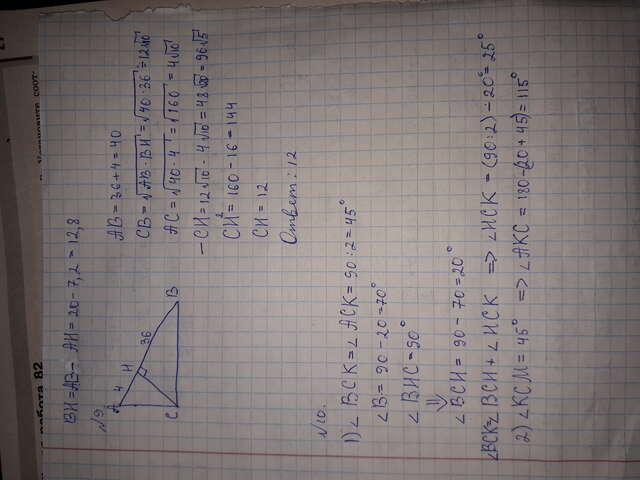 работа 82
Установите соот-
BH = AB - AH = 20 - 7,2 = 12,8
№9.
A
4
H
36
C
B
AB = 36 + 4 = 40
CB = √AB · BH = √40 · 36 = 12√10
AC = √40 · 4 = √160 = 4√10
- CH = 12√10 · 4√10 = 48√20 = 96√5
CH² = 160 - 16 = 144
CH = 12
Ответ: 12
№10.
1) ∠ BCK = ∠ ACK = 90 : 2 = 45°
∠B = 90 - 20 = 70°
∠ BHC = 90°
⇓
∠ BCH = 90 - 70 = 20°
∠BCK = ∠ BCH + ∠ HCK ⇒ ∠HCK = (90:2) - 20° = 25°
2) ∠KCM = 45° ⇒ ∠AKC = 180 - (20 + 45) = 115°